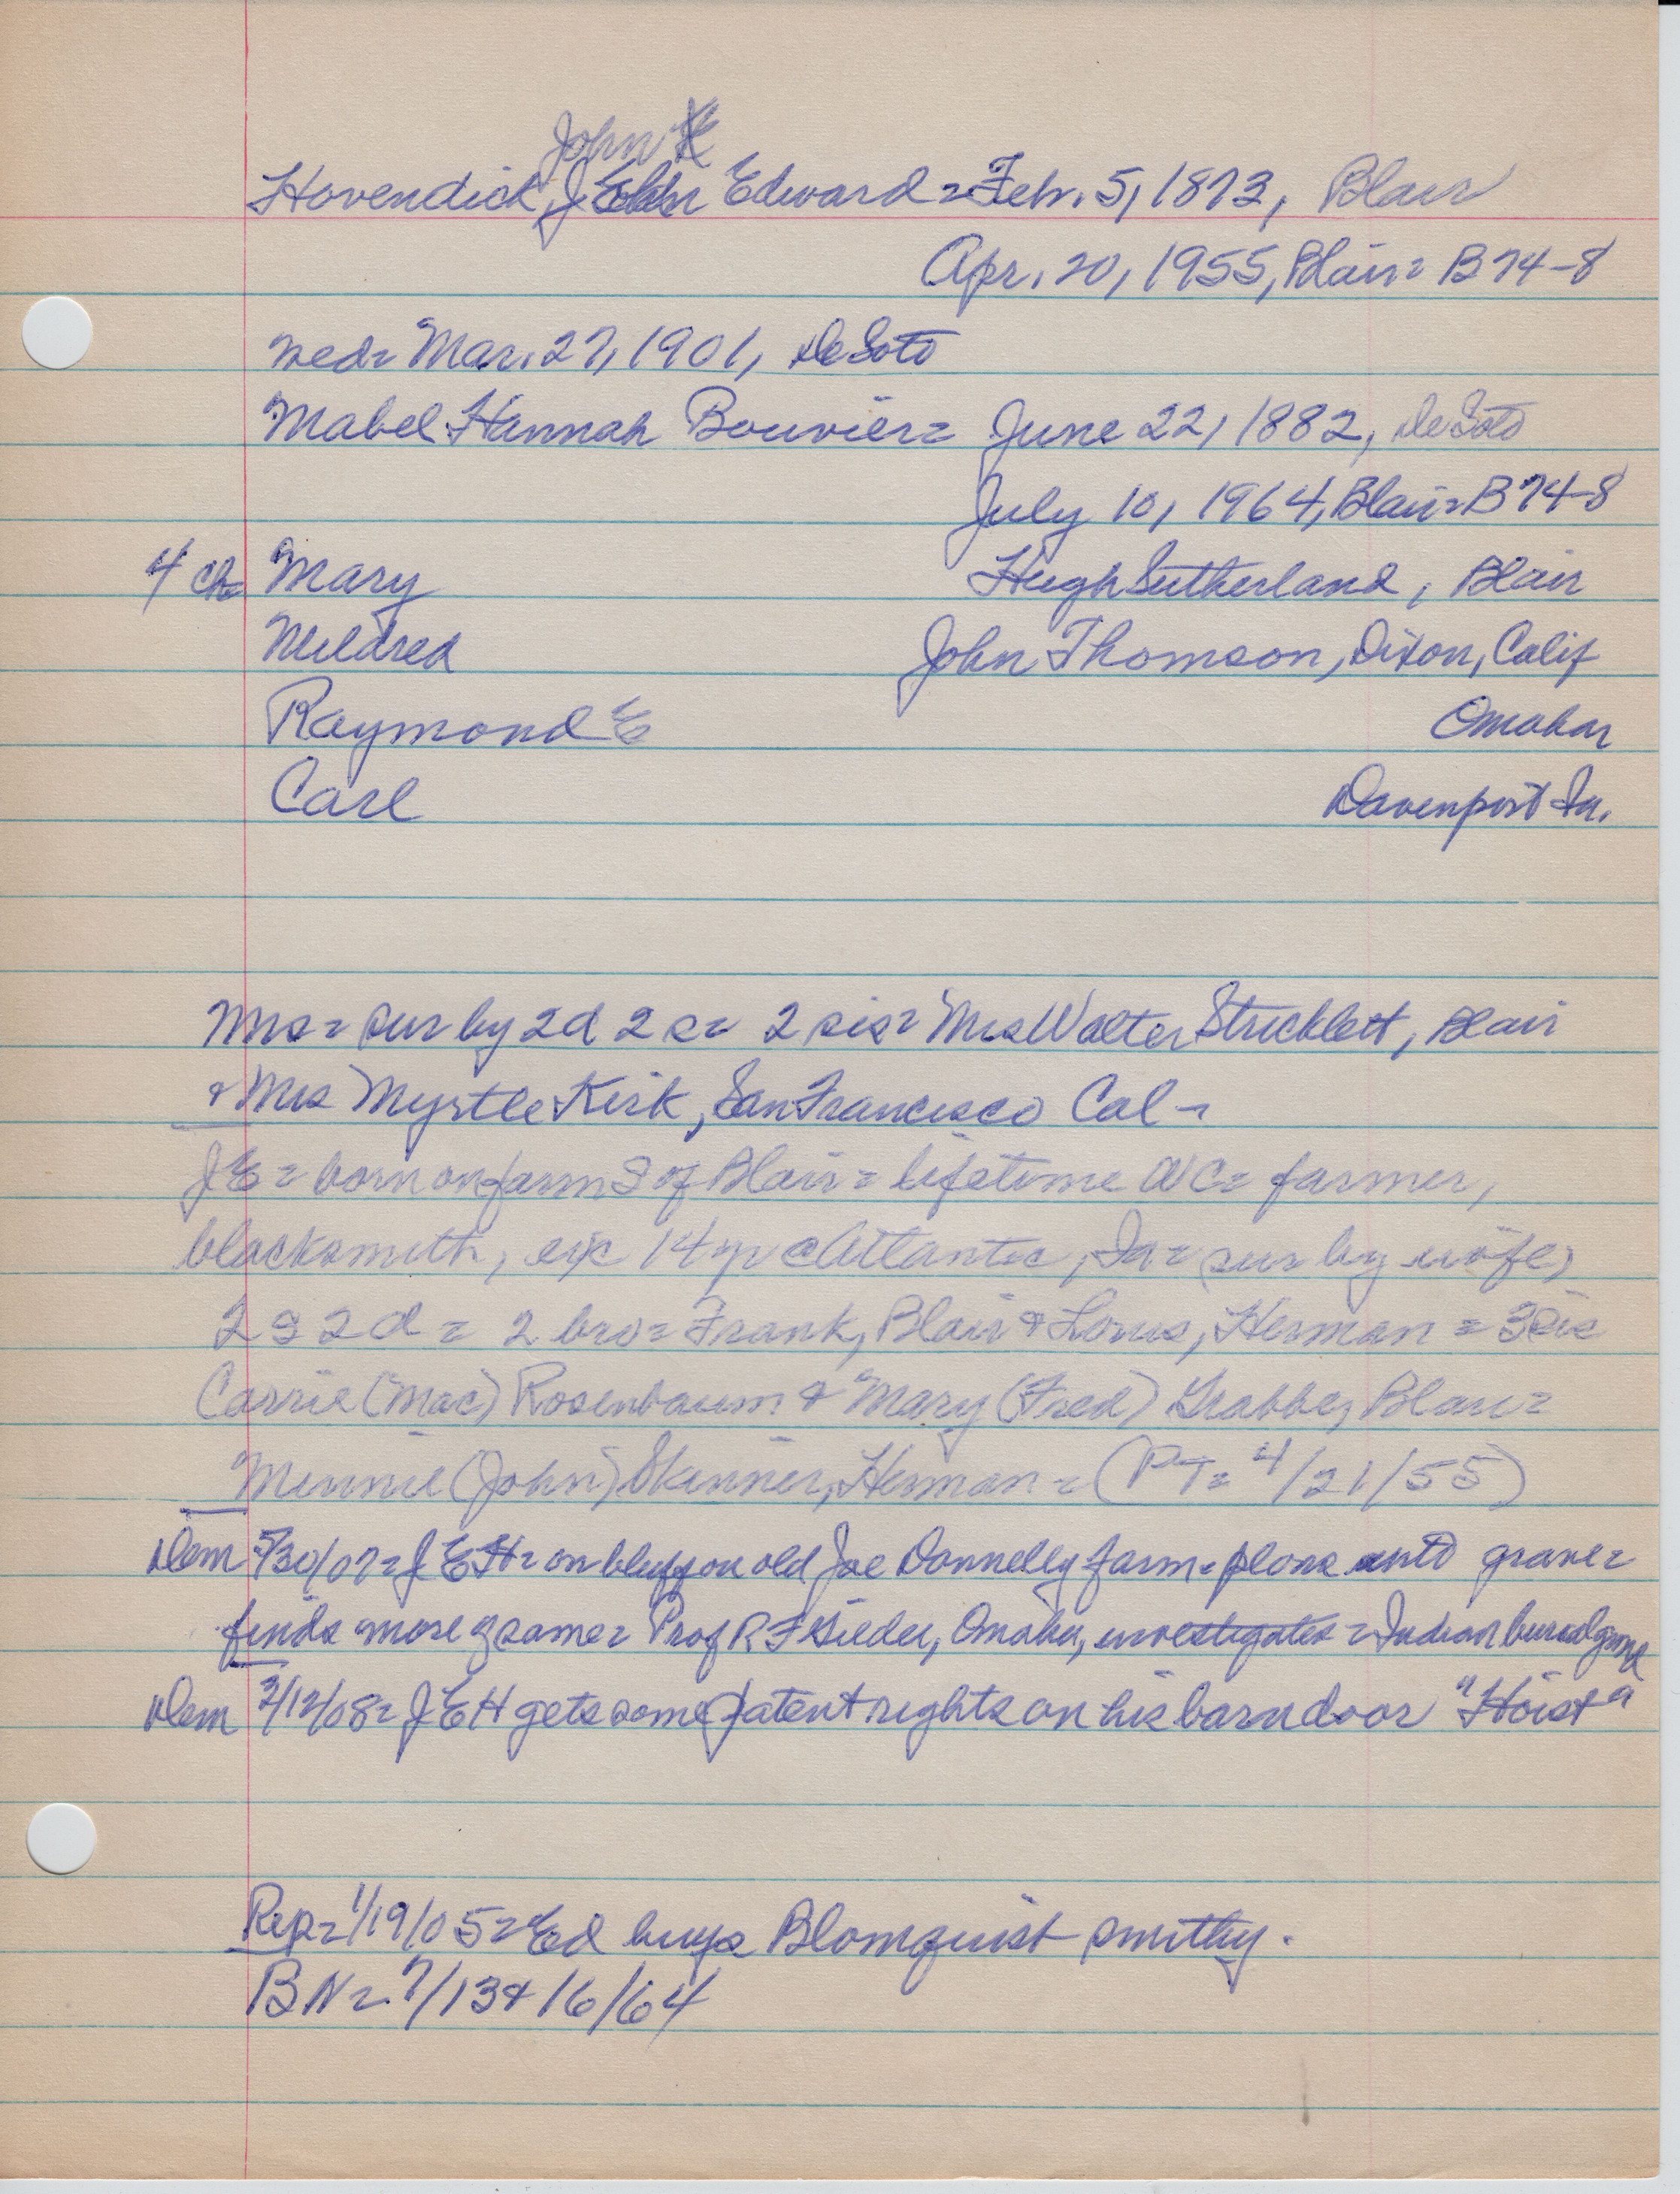 John
Hovendick, J Edward = Feb. 5, 1873, Blair
Apr. 20, 1955, Blair = B 74-8
wed = Mar. 27, 1901, DeSoto
Mabel Hannah Bouvier = June 22, 1882, DeSoto
July 10, 1964, Blair = B 74-8
4 ch = Mary Hugh Sutherland, Blair
Mildred John Thomson, Dixon, Calif
Raymond E Omaha
Carl Davenport Ia.
Mrs = sur by 2d 2s = 2 sis = Mrs Walter Stricklett, Blair
& Mrs Myrtle Kirk, San Francisco Cal -
JE = born on farm S of Blair = lifetime WC = farmer,
blacksmith, exc 14 yr @ Atlantic, Ia = sur by wife,
2s 2d = 2 bro = Frank, Blair & Louis, Herman = 3 sis
Carrie (Mac) Rosenbaum & Mary (Fred) Grabbe, Blair =
Minnie (John) Skinner, Herman = (PT = 4/21/55)
Dem 5/30/07 = JEH = on bluff on old Joe Donnelly farm = plows into grave =
finds more of same = Prof R F Gilder, Omaha, investigates = Indian burial
Dem 3/12/08 = JEH gets some patent rights on his barn door "Hoist"
Rep = 1/19/05 = Ed buys Blomquist smithy.
BN = 7/13 & 16/64